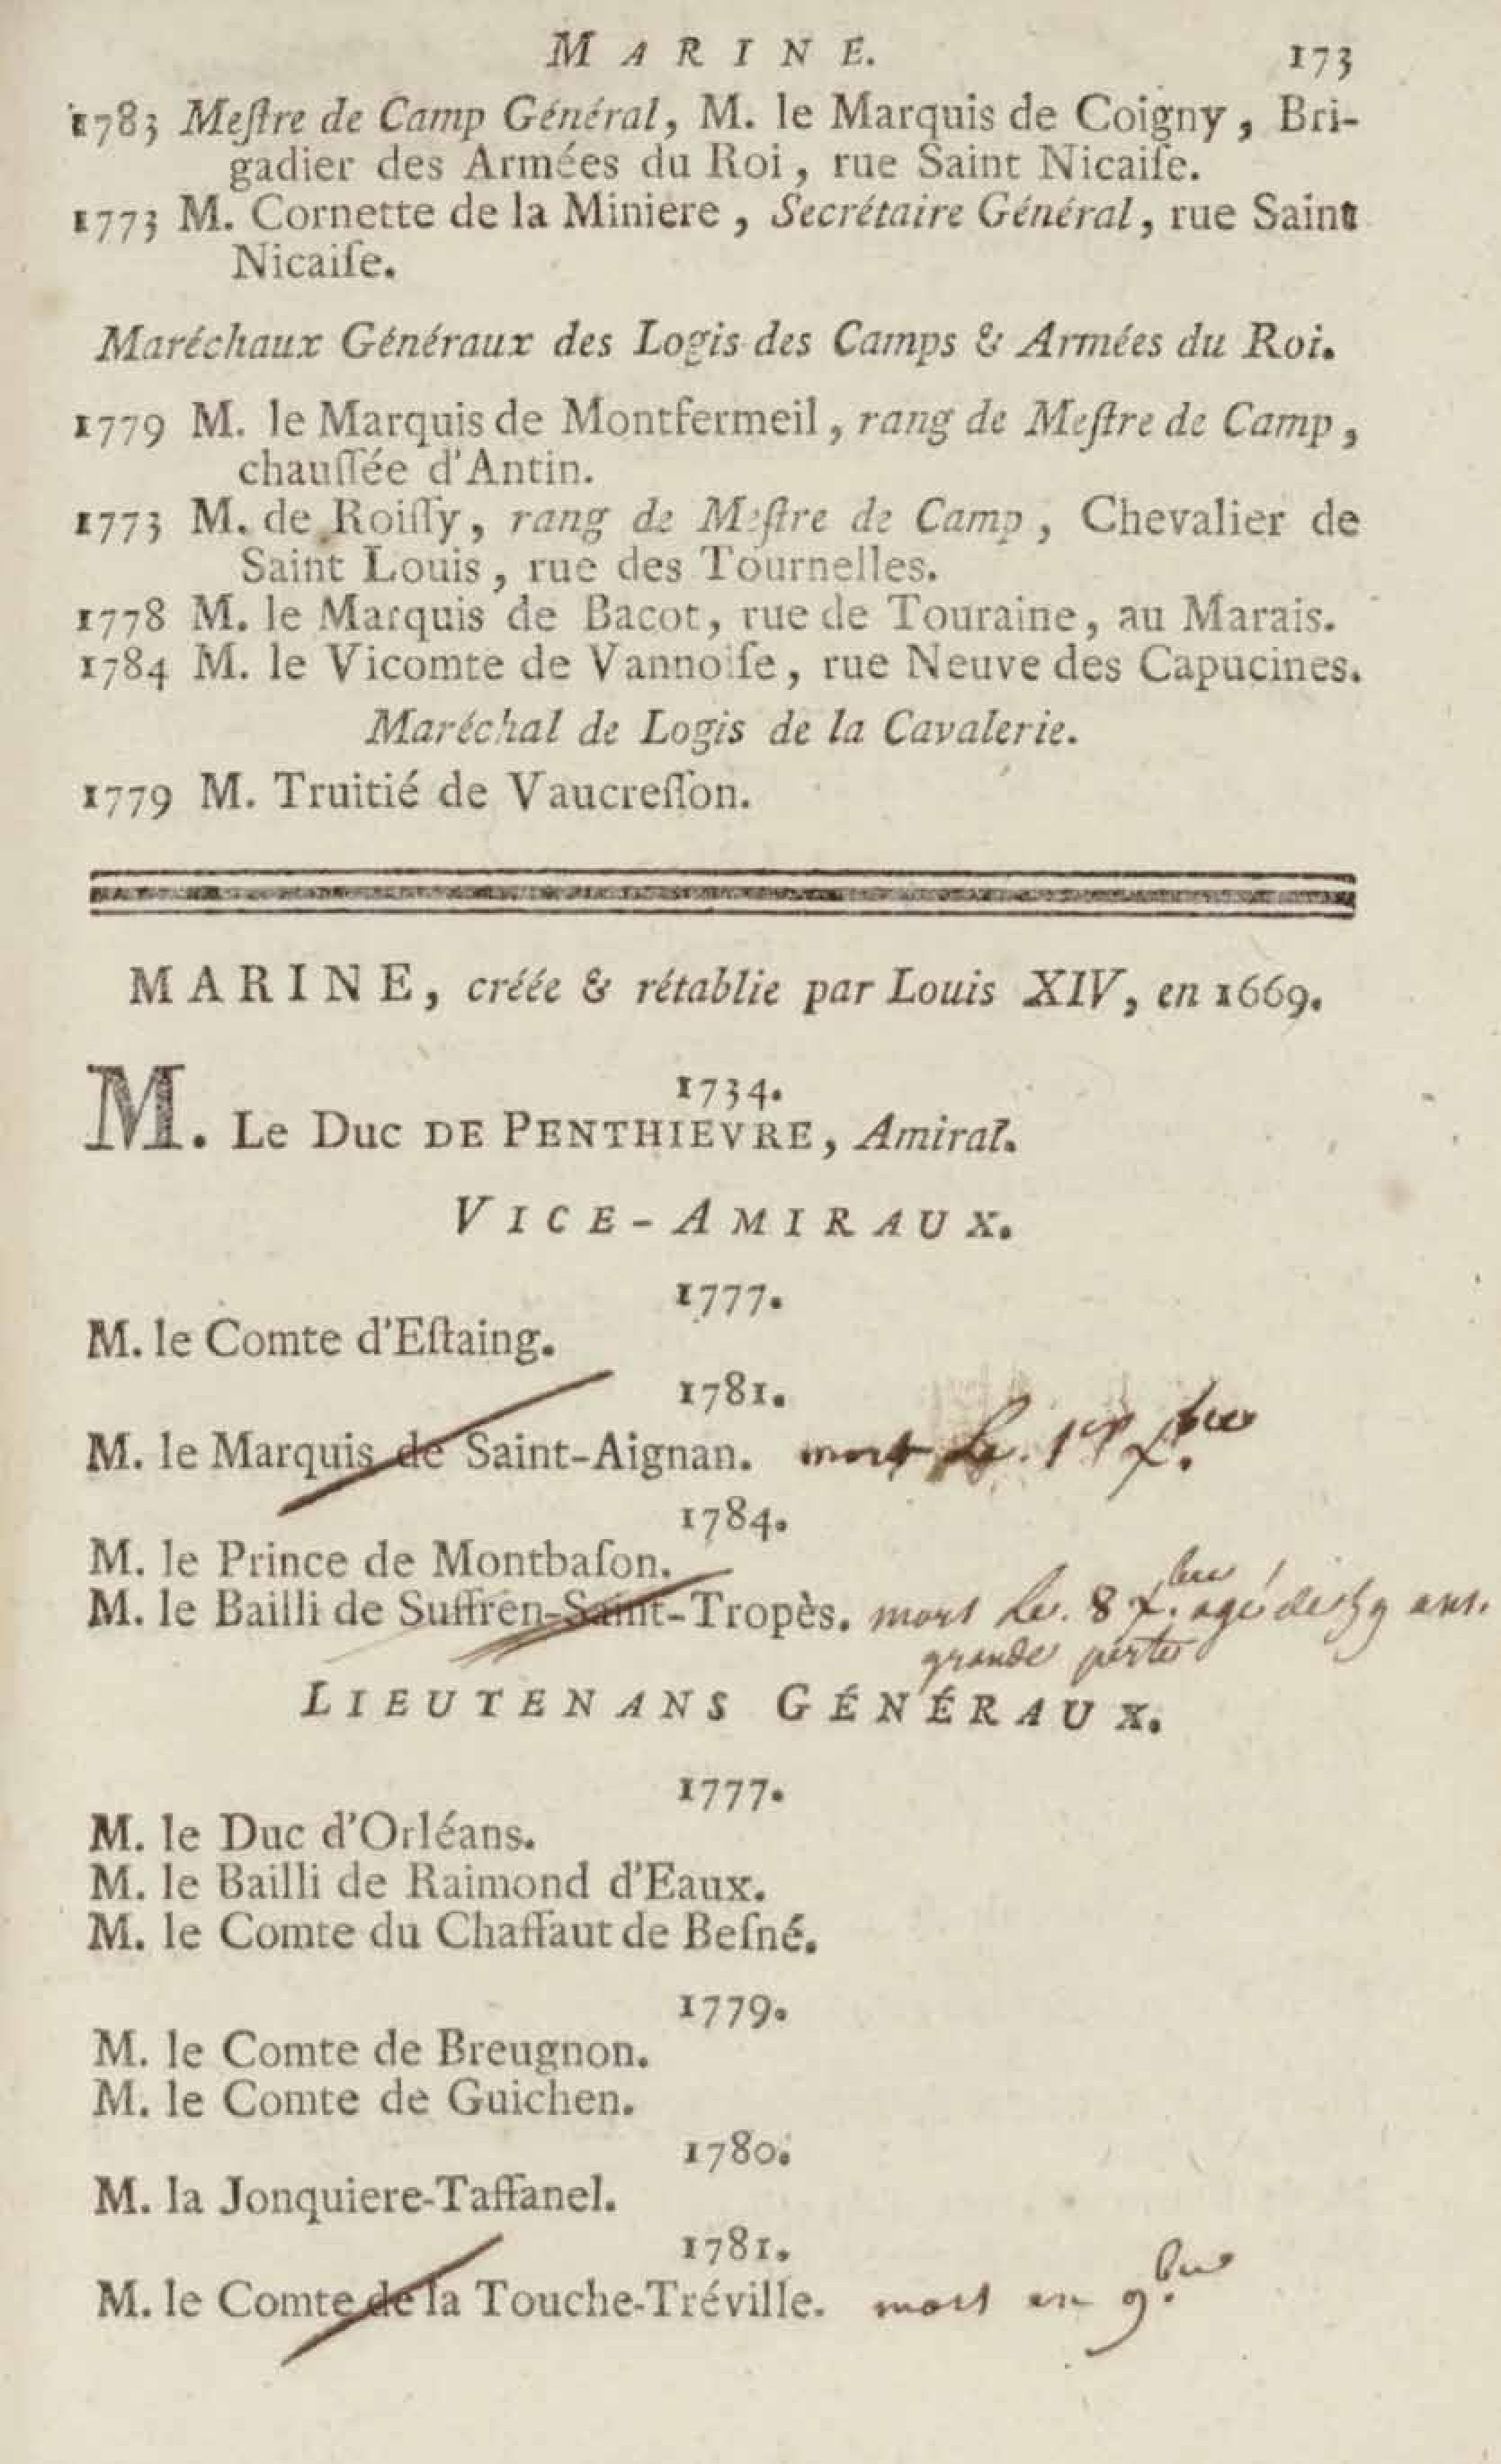 MARINE. 173
1783 Meſtre de Camp Général, M. le Marquis de Coigny, Bri-
gadier des Armées du Roi, rue Saint Nicaiſe.
1773 M. Cornette de la Miniere, Secrétaire Général, rue Saint
Nicaiſe.
Maréchaux Généraux des Logis des Camps & Armées du Roi.
1779 M. le Marquis de Montfermeil, rang de Meſtre de Camp,
chauſſée d'Antin.
1773 M. de Roiſſy, rang de Meſtre de Camp, Chevalier de
Saint Louis, rue des Tournelles.
1778 M. le Marquis de Bacot, rue de Touraine, au Marais.
1784 M. le Vicomte de Vannoiſe, rue Neuve des Capucines.
Maréchal de Logis de la Cavalerie.
1779 M. Truitié de Vaucreſſon.
MARINE, créée & rétablie par Louis XIV, en 1669.
1734.
M. Le Duc DE PENTHIEVRE, Amiral.
VICE-AMIRAUX.
1777.
M. le Comte d'Eſtaing.
1781.
M. le Marquis de Saint-Aignan. mort le 1er Xbre
1784.
M. le Prince de Montbaſon.
M. le Bailli de Suffren-Saint-Tropès. mort le 8 Xbre agé de 59 ans.
grande perte
LIEUTENANS GÉNÉRAUX.
1777.
M. le Duc d'Orléans.
M. le Bailli de Raimond d'Eaux.
M. le Comte du Chaffaut de Beſné.
1779.
M. le Comte de Breugnon.
M. le Comte de Guichen.
1780.
M. la Jonquiere-Taffanel.
1781.
M. le Comte de la Touche-Tréville. mort en 9bre